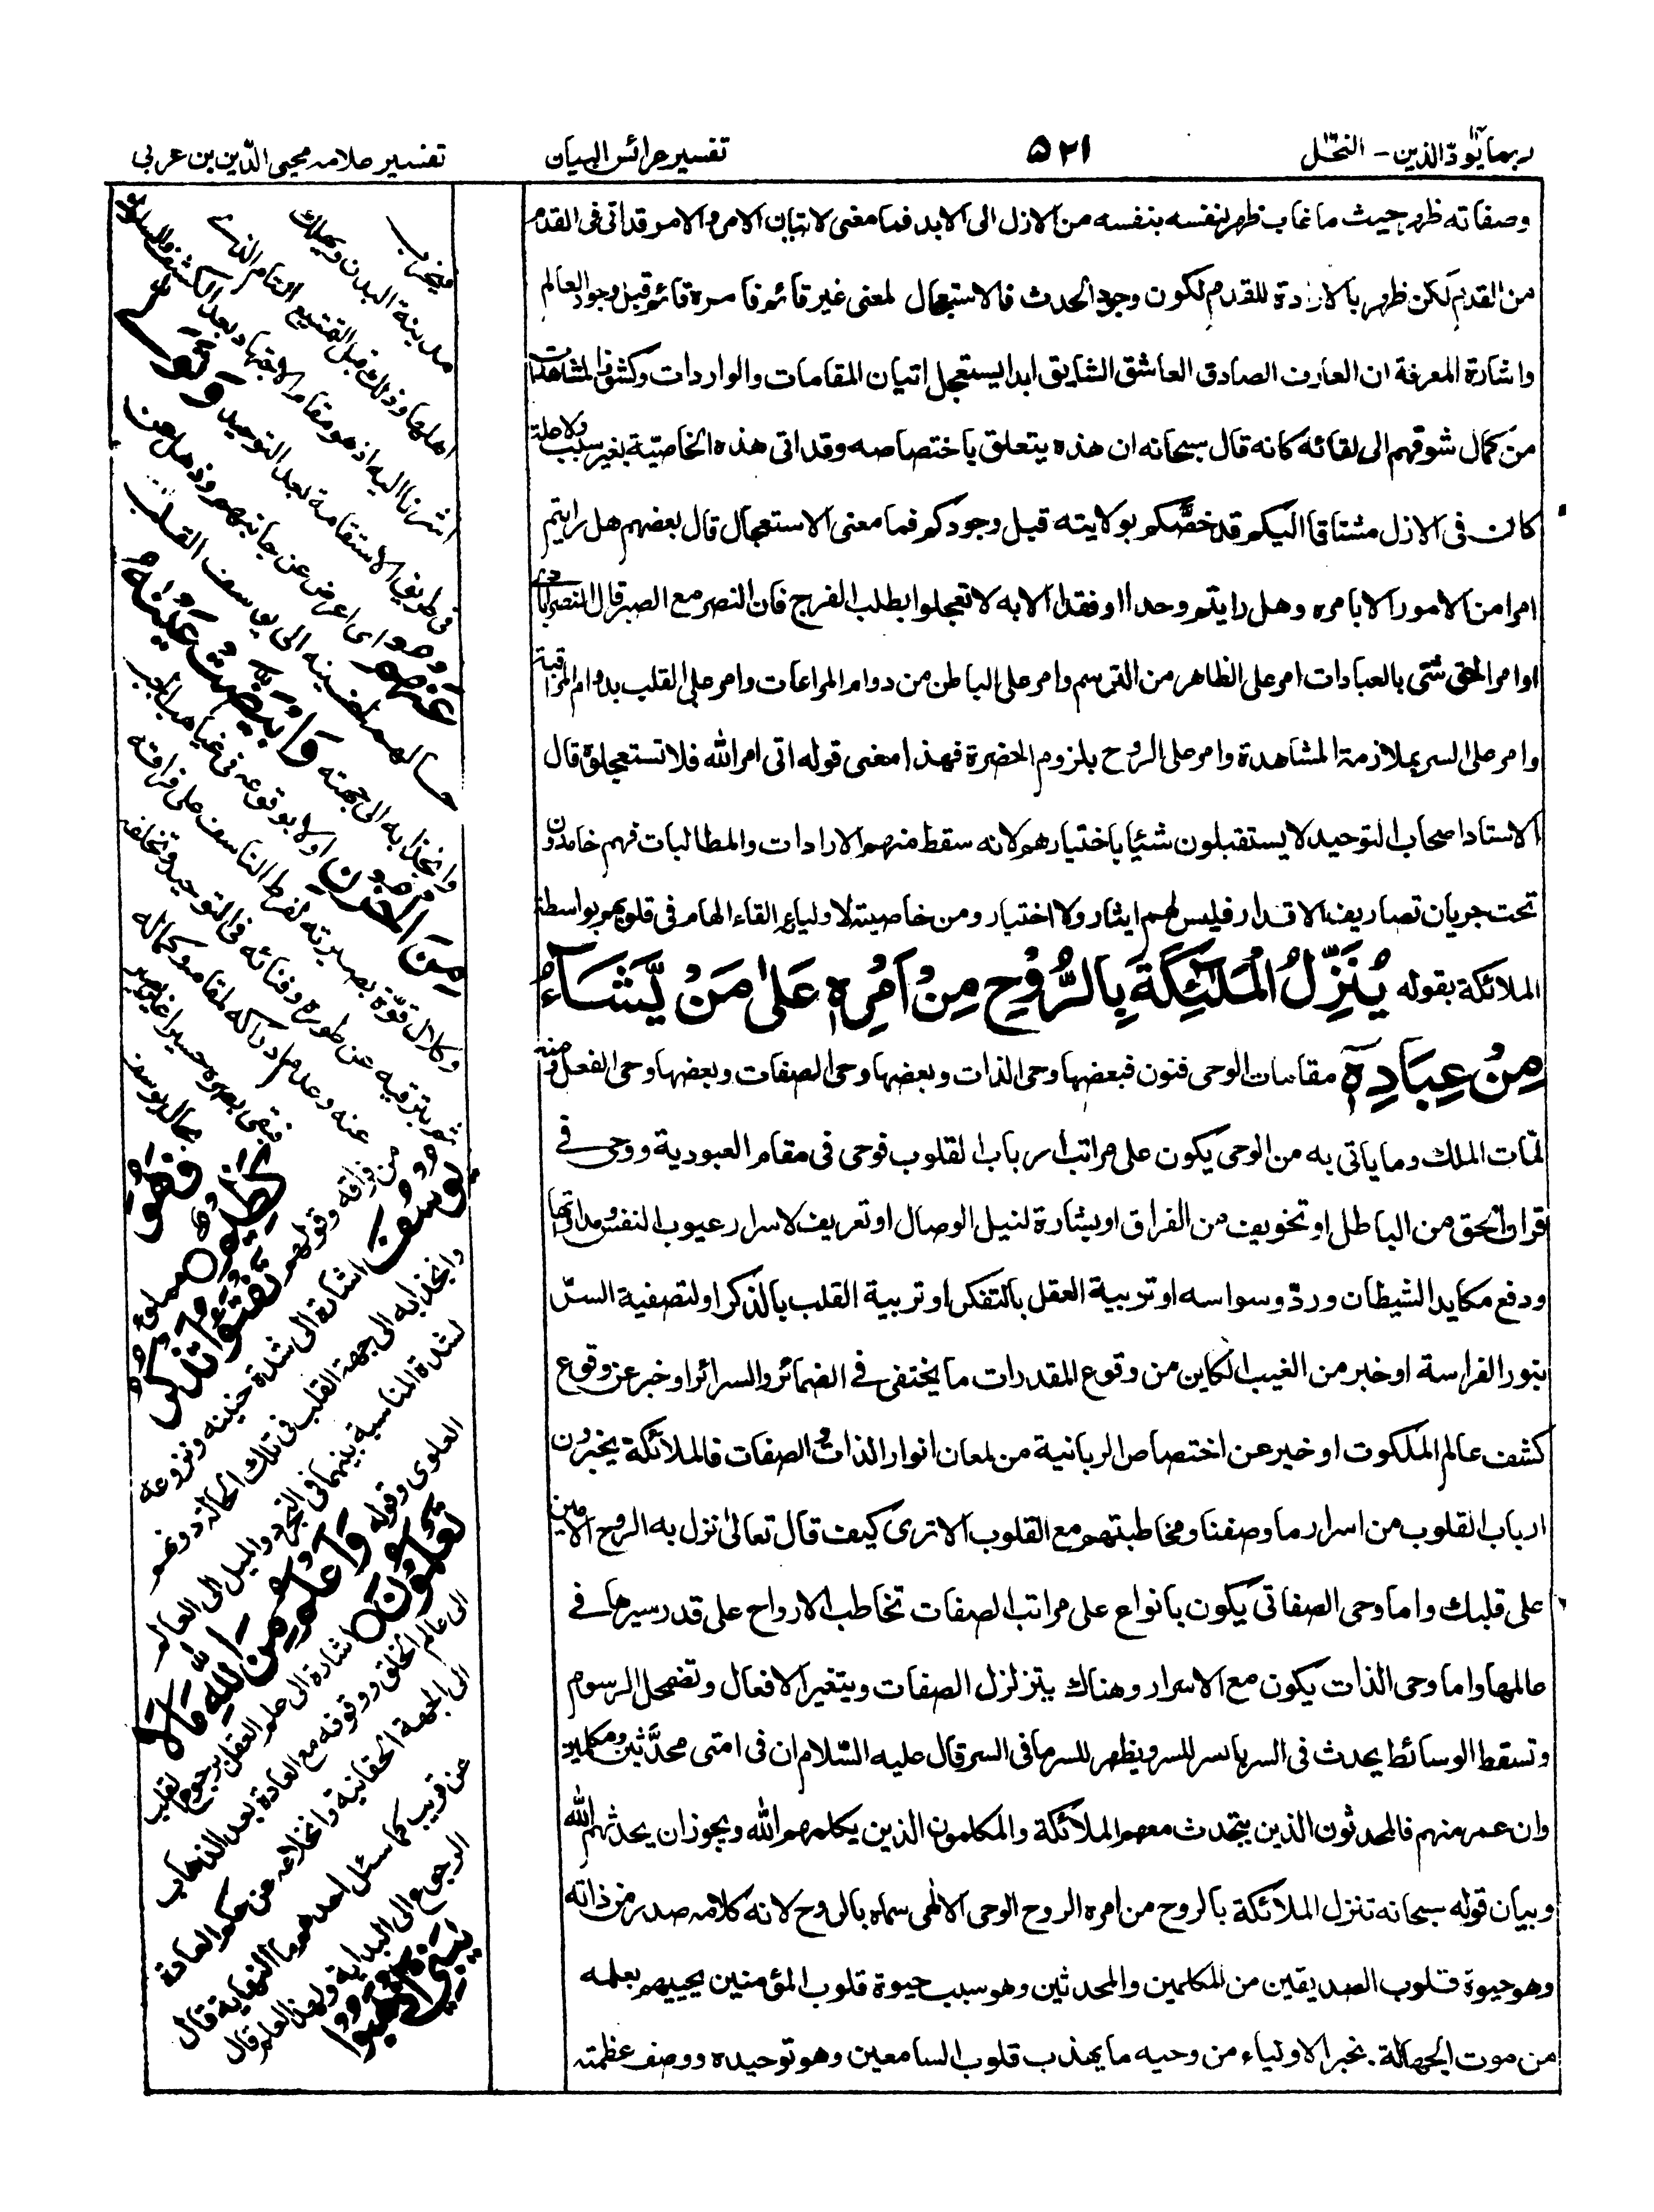 ربما يودّ الذين - النحل
۵۲۱
تفسير عرائس البيان
تفسير علامه محيي الدّين بن عربي
وصفاته ظهر حيث ما غاب ظهر لنفسه بنفسه من الازل الى الابد فما معنى لاتيان الامر والامر قد اتى فى القدم
من القدم لكن ظهر بالارادة للقدم لكون وجود الحدث فالاستعجال لمعنى غير قائم فامره قائم قبل وجود العالم
واشارة المعرفة ان العارف الصادق العاشق الشايق ابدا يستعجل اتيان المقامات والواردات وكشف المشاهدات
من كمال شوقهم الى لقائه كانه قال سبحانه ان هذه يتعلق باختصاصه وقد اتى هذه الخاصيّة بغير سبب ولا علة
كان فى الازل مشتاقا اليكم قد خصّكم بولايته قبل وجودكم فما معنى الاستعجال قال بعضهم هل رايتم
امرا من الامور الا بامره وهل رايتم وحدا او فقدا الا به لا تعجلوا بطلب الفرج فان النصر مع الصبر قال النصرابادى
اوامر الحق شتى بالعبادات امر على الظاهر من الترسم وامر على الباطن من دوام المراعات وامر على القلب بدوام المراقبة
وامر على السر بملازمة المشاهدة وامر على الروح بلزوم الحضرة فهذا معنى قوله اتى امر الله فلا تستعجلوه قال
الاستاد اصحاب التوحيد لا يستقبلون شئيا باختيارهم لانه سقط منهم الارادات والمطالبات فهم خامدون
تحت جريان تصاريف الاقدار فليس لهم ايثار ولا اختيار ومن خاصيته لاوليائه القاء الهام فى قلوبهم بواسطة
الملائكة بقوله يُنَزِّلُ الْمَلٰٓئِكَةَ بِالرُّوْحِ مِنْ اَمْرِهٖ عَلٰى مَنْ يَّشَآءُ
مِنْ عِبَادِهٖٓ مقامات الوحى فنون فبعضها وحى الذات وبعضها وحى الصفات وبعضها وحى الفعل ومنه
لمّات الملك وما ياتى به من الوحى يكون على مراتب ارباب القلوب فوحى فى مقام العبودية ووحى فے
قران الحق من الباطل او تخويف من الفراق او بشارة لنيل الوصال او تعريف لاسرار عيوب النفس ومداقها
ودفع مكايد الشيطان وردّ وسواسه او تربية العقل بالتفكر او تربية القلب بالذكر او لتصفية السرّ
بنور الفراسة او خبر من الغيب الكاين من وقوع المقدرات ما يختفى فے الضمائر والسرائر او خبر عن وقوع
كشف عالم الملكوت او خبر عن اختصاص الربانية من لمعان انوار الذات والصفات فالملائكة يخبرون
ارباب القلوب من اسرار ما وصفنا ومخاطبتهم مع القلوب الا ترى كيف قال تعالى نزل به الروح الامين
على قلبك واما وحى الصفاتى يكون بانواع على مراتب الصفات تخاطب الارواح على قدر سيرها فے
عالمها واما وحى الذات يكون مع الاسرار وهناك يتزلزل الصفات ويتغير الافعال وتضمحل الرسوم
وتسقط الوسائط يحدث فى السر بالسر للسر ويظهر للسر ما فى السر قال عليه السّلام ان فى امتى محدّثين ومكلمين
وان عمر منهم فالمحدثون الذين يتحدث معهم الملائكة والمكلمون الذين يكلمهم الله ويجوز ان يحدثهم الله
وبيان قوله سبحانه تنزل الملائكة بالروح من امره الروح الوحى الالٰهى سماه بالروح لانه كلامه صدر من ذاته
وهو حيوة قلوب الصديقين من المكلمين والمحدثين وهو سبب حيوة قلوب المؤمنين يحييهم بعلمه
من موت الجهالة. نخبر الاولياء من وحيه ما يهذب قلوب السامعين وهو توحيده ووصف عظمته
فيخرب
مدينة البدن ويهلك
اهلها وذلك قبل التمتيع التام الذے
اشرنا اليه اذ هو مقام
فى طريق الاستقامة بعد التوحيد وَتَوَلّٰے
عَنْهُمْ اى اعرض عن جانبهم وذهل عن
حالهم لحنينه الى يوسف القلب
وانجذابه الى جهته وَابْيَضَّتْ عَيْنٰهُ
مِنَ الْحُزْنِ اولا بوقوعه فى غيابة الجب
وكلال قوّة بصيرته لفرط التاسف على فراقه
ثم بترقيه عن طوره وفنائه فى التوحيد وتخلفه
عنه وعدم ادراكه لمقامه وكماله
فبقى بصره حسيرا غير بصير
بحال يوسف
فَهُوَ
كَظِيْمٌ مملوء
من فراقه وقولهم تَفْتَؤُا تَذْكُرُ
يُوْسُفَ اشارة الى شدة حنينه ونزوعه
وانجذابه الى جهة القلب فى تلك الحالة دونهم
لشدة المناسبة بينهما فى التجرد والميل الى العالم
العلوى وقوله وَاَعْلَمُ مِنَ اللّٰهِ مَا لَا
تَعْلَمُوْنَ اشارة الى علم العقل برجوع القلب
الى عالم الخلق ووقوفه مع العادة بعد الذهاب
الى الجهة الحقانية وانخلاعه عن حكم العادة
عن قريب كما سئل احدهم ما النهاية فقال
الرجوع الى البداية ولهذا العلم قال
يٰبَنِىَّ اذْهَبُوْا